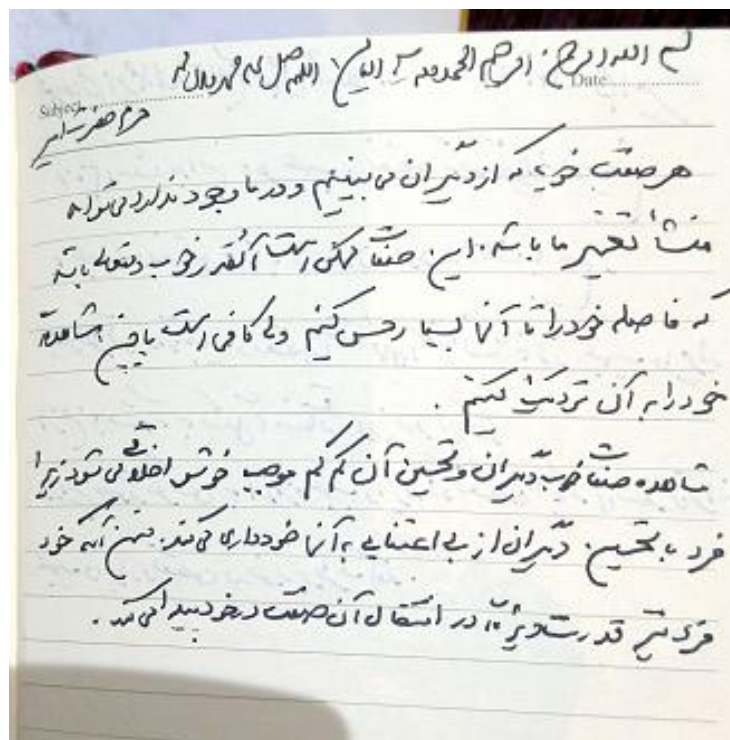 بسم الله الرحمن الرحیم الحمدلله رب العالمین اللهم صل علی محمد و آل محمد
Subject: Date
حرم حضرت امیر
هر صفت خوب که از دیگران می بینیم و در ما وجود ندارد می تواند
منشأ تغییر ما باشد. این صفت ممکن است آنقدر خوب و متعالی باشد
که فاصله خود را تا آنها بسیار حس کنیم ولی کافی است با این مشاهده
خود را به آن نزدیک کنیم.
مشاهده صفات خوب دیگران و تحسین آن کم کم موجب خوش اخلاقی می شود زیرا
فرد با تحسین دیگران از بی اعتنایی به آنها خودداری می کند. ضمن آنکه خود
فرد نیز قدرت ویژه ای در انتقال آن صفت در خود پیدا می کند.